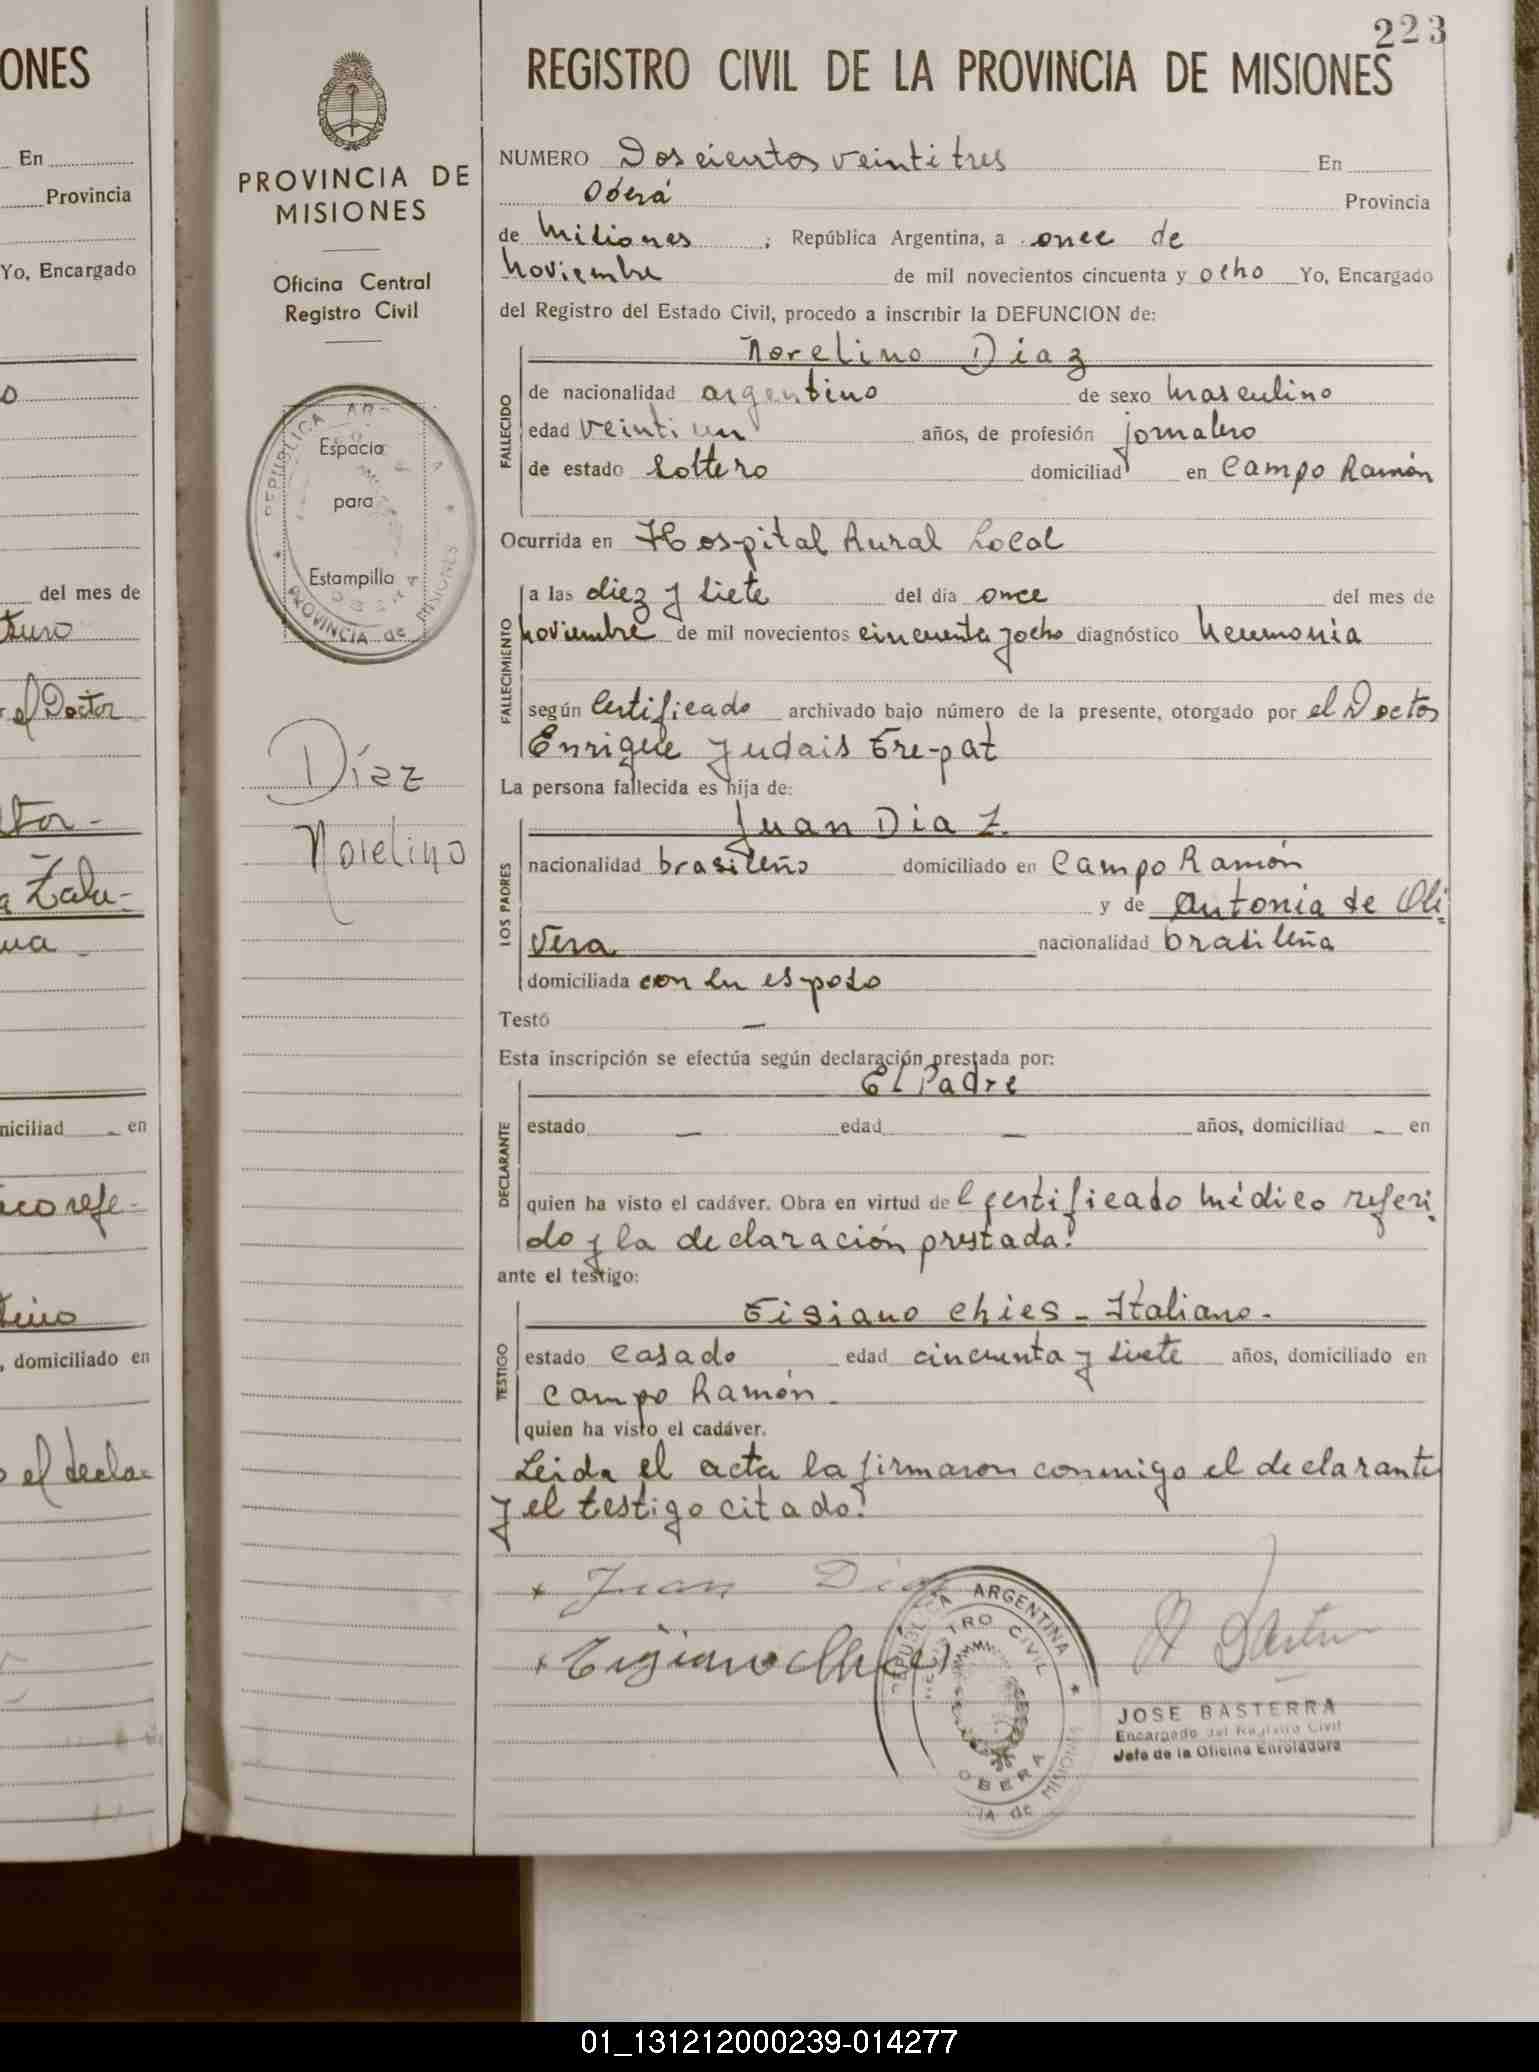 ONES
En
Provincia
Yo, Encargado
o
del mes de
el Doctor
niciliad - en
ico refe-
, domiciliado en
el decla-
PROVINCIA DE
MISIONES
Oficina Central
Registro Civil
REPUBLICA AR
Espacio
para
Estampilla
PROVINCIA de MISIONES
Díaz
Norelino
223
REGISTRO CIVIL DE LA PROVINCIA DE MISIONES
NUMERO Doscientos veintitres En
Oberá Provincia
de Misiones ; República Argentina, a once de
Noviembre de mil novecientos cincuenta y ocho Yo, Encargado
del Registro del Estado Civil, procedo a inscribir la DEFUNCION de:
FALLECIDO
Norelino Diaz
de nacionalidad argentino de sexo masculino
edad veintiun años, de profesión jornalero
de estado soltero domiciliad en Campo Ramón
Ocurrida en Hospital Rural Local
FALLECIMIENTO
a las diez y siete del día once del mes de
noviembre de mil novecientos cincuenta y ocho diagnóstico Neumonia
según certificado archivado bajo número de la presente, otorgado por el Doctor
Enrique Judais Tre-pat
La persona fallecida es hija de:
LOS PADRES
Juan Diaz.
nacionalidad brasileño domiciliado en Campo Ramón
y de Antonia de Oli-
vera nacionalidad brasileña
domiciliada con su esposo
Testó -
Esta inscripción se efectúa según declaración prestada por:
DECLARANTE
El Padre
estado - edad - años, domiciliad - en
quien ha visto el cadáver. Obra en virtud del certificado médico referi-
do y la declaración prestada.
ante el testigo:
TESTIGO
Tisiano Chies - Italiano -
estado casado edad cincuenta y siete años, domiciliado en
Campo Ramón -
quien ha visto el cadáver.
Leida el acta la firmaron conmigo el declarante
y el testigo citado.
x Juan Diaz
x Tiziano Chies
REPUBLICA ARGENTINA
REGISTRO CIVIL
OBERA
CIA de MISIONES
JOSE BASTERRA
Encargado del Registro Civil
Jefe de la Oficina Enroladora
01_131212000239-014277